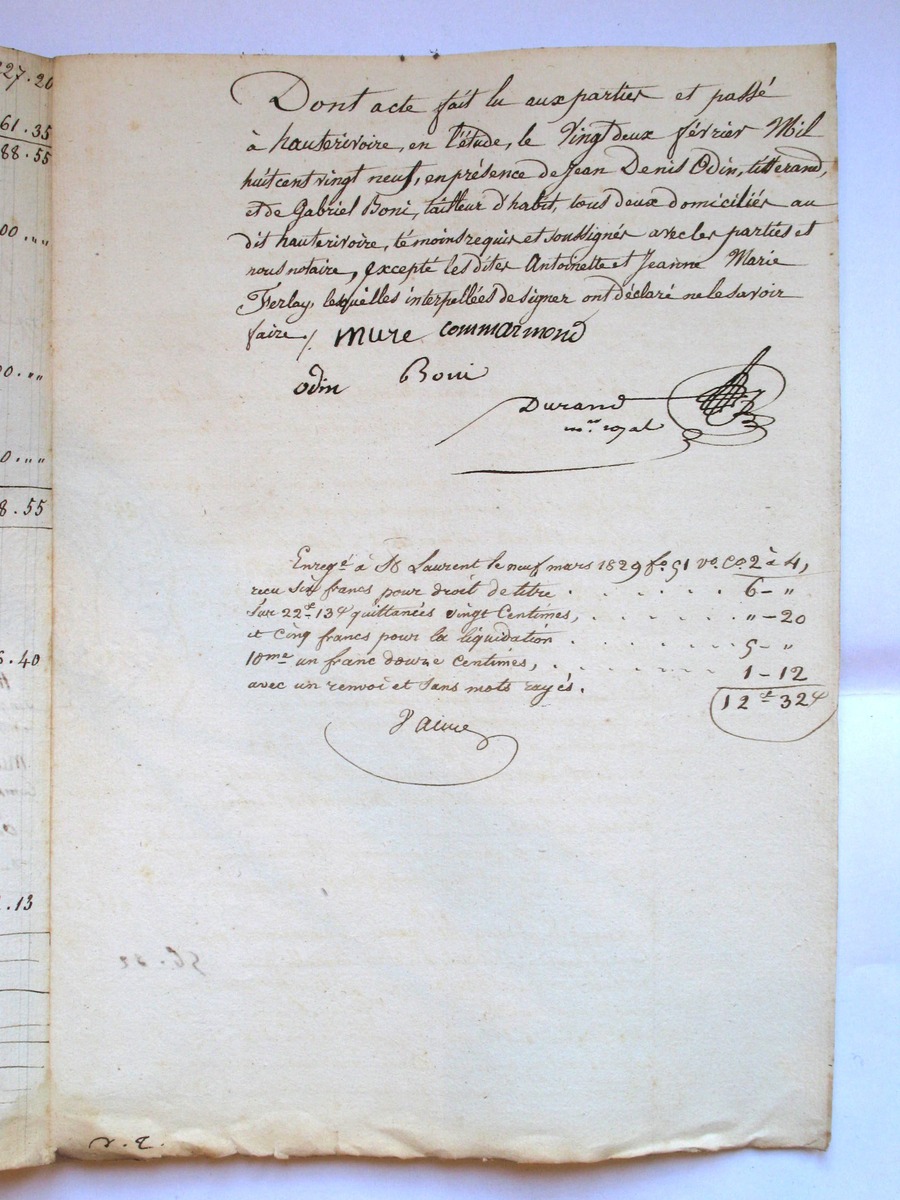 227.20
61.35
88.55
00.""
00.""
0.""
8.55
6.40
.13
Dont acte fait lu aux parties et passé
à hauterivoire, en l'étude, le Vingt deux février Mil
huit cent vingt neuf, en présence de Jean Denis Odin, titterand,
et de Gabriel Boni, tailleur d'habit, tous deux domiciliés au
dit hauterivoire, témoins requis et soussignés avec les parties et
nous notaire, excepté les dites Antoinette et Jeanne Marie
Ferlay, lesquelles interpellées de signer ont déclaré ne le savoir
faire ./ mure commarmond
odin Boni
Durand
nre royal
Enregé à St Laurent le neuf mars 1829 fo 51 vo Co 2 à 4,
reçu six francs pour droit de titre . . . . . . 6 - "
Sur 22f 13c quittancés vingt Centimes, . . . . . . " - 20
et Cinq francs pour la liquidation . . . . . . 5 - "
10me un franc douze Centimes, . . . . . . 1 - 12
avec un renvoi et sans mots rayés. 12f 32c